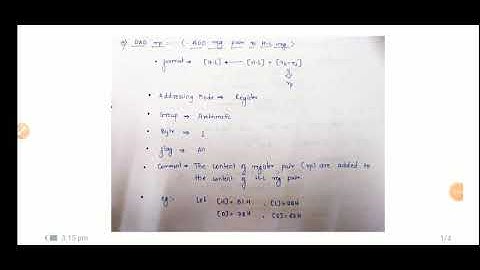 DAD rp :- ( ADD reg pair to H-L reg )
• format → [H-L] ← [H-L] + [rh-rl]
rp
• Addressing Mode → Register
• Group → Arithmetic
• Byte → 1
• flag → All
• Comment → The content of register pair (rp) are added to
the content of H-L reg pair.
• eg:- Let [H]= H , [L]= H
[D]= H , [E]= H
3:15 pm
1/2